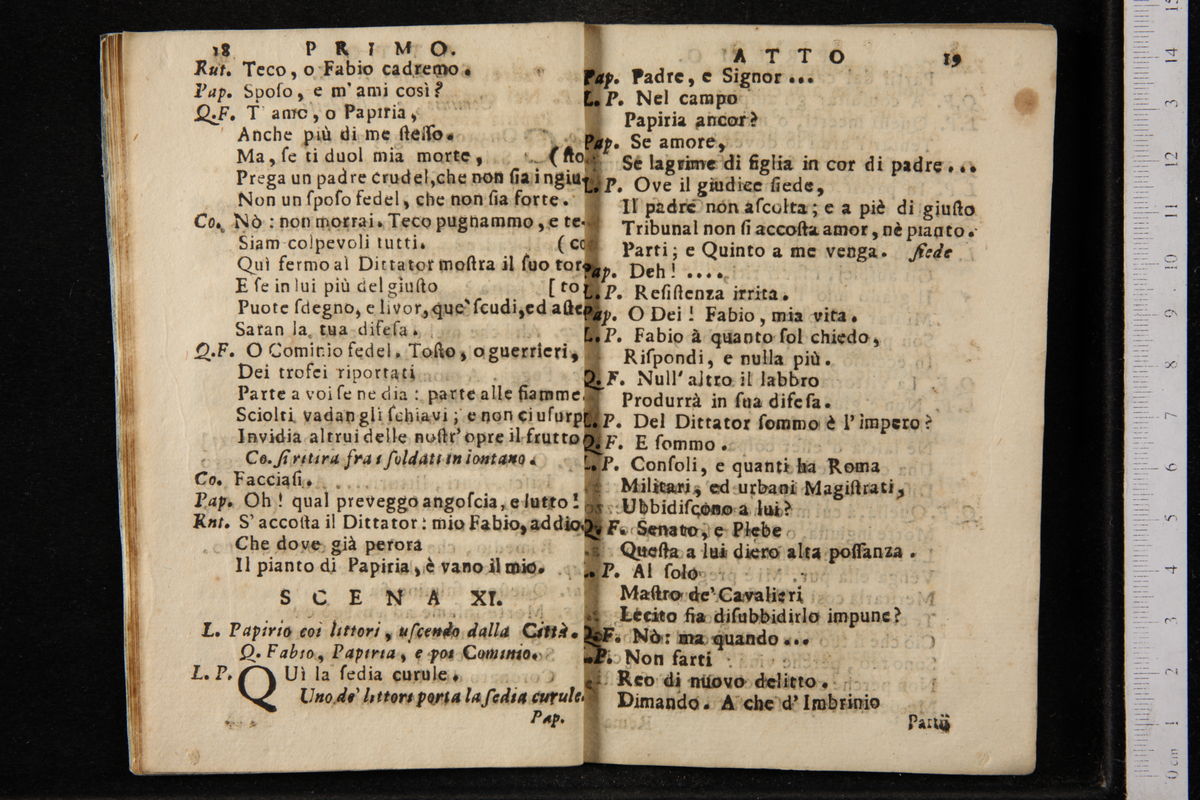 18 PRIMO.
Rut. Teco, o Fabio cadremo.
Pap. Spoſo, e m' ami così?
Q.F. T' amo, o Papiria,
Anche più di me ſteſſo.
Ma, ſe ti duol mia morte, (ſto.
Prega un padre crudel, che non ſia ingiu-
Non un ſpoſo fedel, che non ſia forte.
Co. Nò: non morrai. Teco pugnammo, e te-
Siam colpevoli tutti. (co
Quì fermo al Dittator moſtra il ſuo tor-
E ſe in lui più del giuſto [to
Puote ſdegno, e livor, que' ſcudi, ed aſte
Saran la tua difeſa.
Q.F. O Cominio fedel. Toſto, o guerrieri,
Dei trofei riportati
Parte a voi ſe ne dia: parte alle fiamme.
Sciolti vadan gli ſchiavi; e non ci uſurpi
Invidia altrui delle noſtr' opre il frutto
Co. ſi ritira fra i ſoldati in lontano.
Co. Facciaſi.
Pap. Oh! qual preveggo angoſcia, e lutto!
Rnt. S' accoſta il Dittator: mio Fabio, addio
Che dove già perora
Il pianto di Papiria, è vano il mio.
SCENA XI.
L. Papirio coi littori, uſcendo dalla Città.
Q. Fabio, Papiria, e poi Cominio.
L. P. QUì la ſedia curule.
Uno de' littori porta la ſedia curule.
Pap.
ATTO 19
Pap. Padre, e Signor...
L. P. Nel campo
Papiria ancor?
Pap. Se amore,
Se lagrime di figlia in cor di padre...
L. P. Ove il giudice ſiede,
Il padre non aſcolta; e a piè di giuſto
Tribunal non ſi accoſta amor, nè pianto.
Parti; e Quinto a me venga. ſiede
Pap. Deh! ....
L. P. Reſiſtenza irrita.
Pap. O Dei! Fabio, mia vita.
L. P. Fabio à quanto ſol chiedo,
Riſpondi, e nulla più.
Q. F. Null' altro il labbro
Produrrà in ſua difeſa.
L. P. Del Dittator ſommo è l' impero?
Q. F. E ſommo.
L. P. Conſoli, e quanti ha Roma
Militari, ed urbani Magiſtrati,
Ubbidiſcono a lui?
Q. F. Senato, e Plebe
Queſta a lui diero alta poſſanza.
L. P. Al ſolo
Maſtro de' Cavalieri
Lecito fia diſubbidirlo impune?
Q. F. Nò: ma quando...
L. P. Non farti
Reo di nuovo delitto.
Dimando. A che d' Imbrinio
Partii